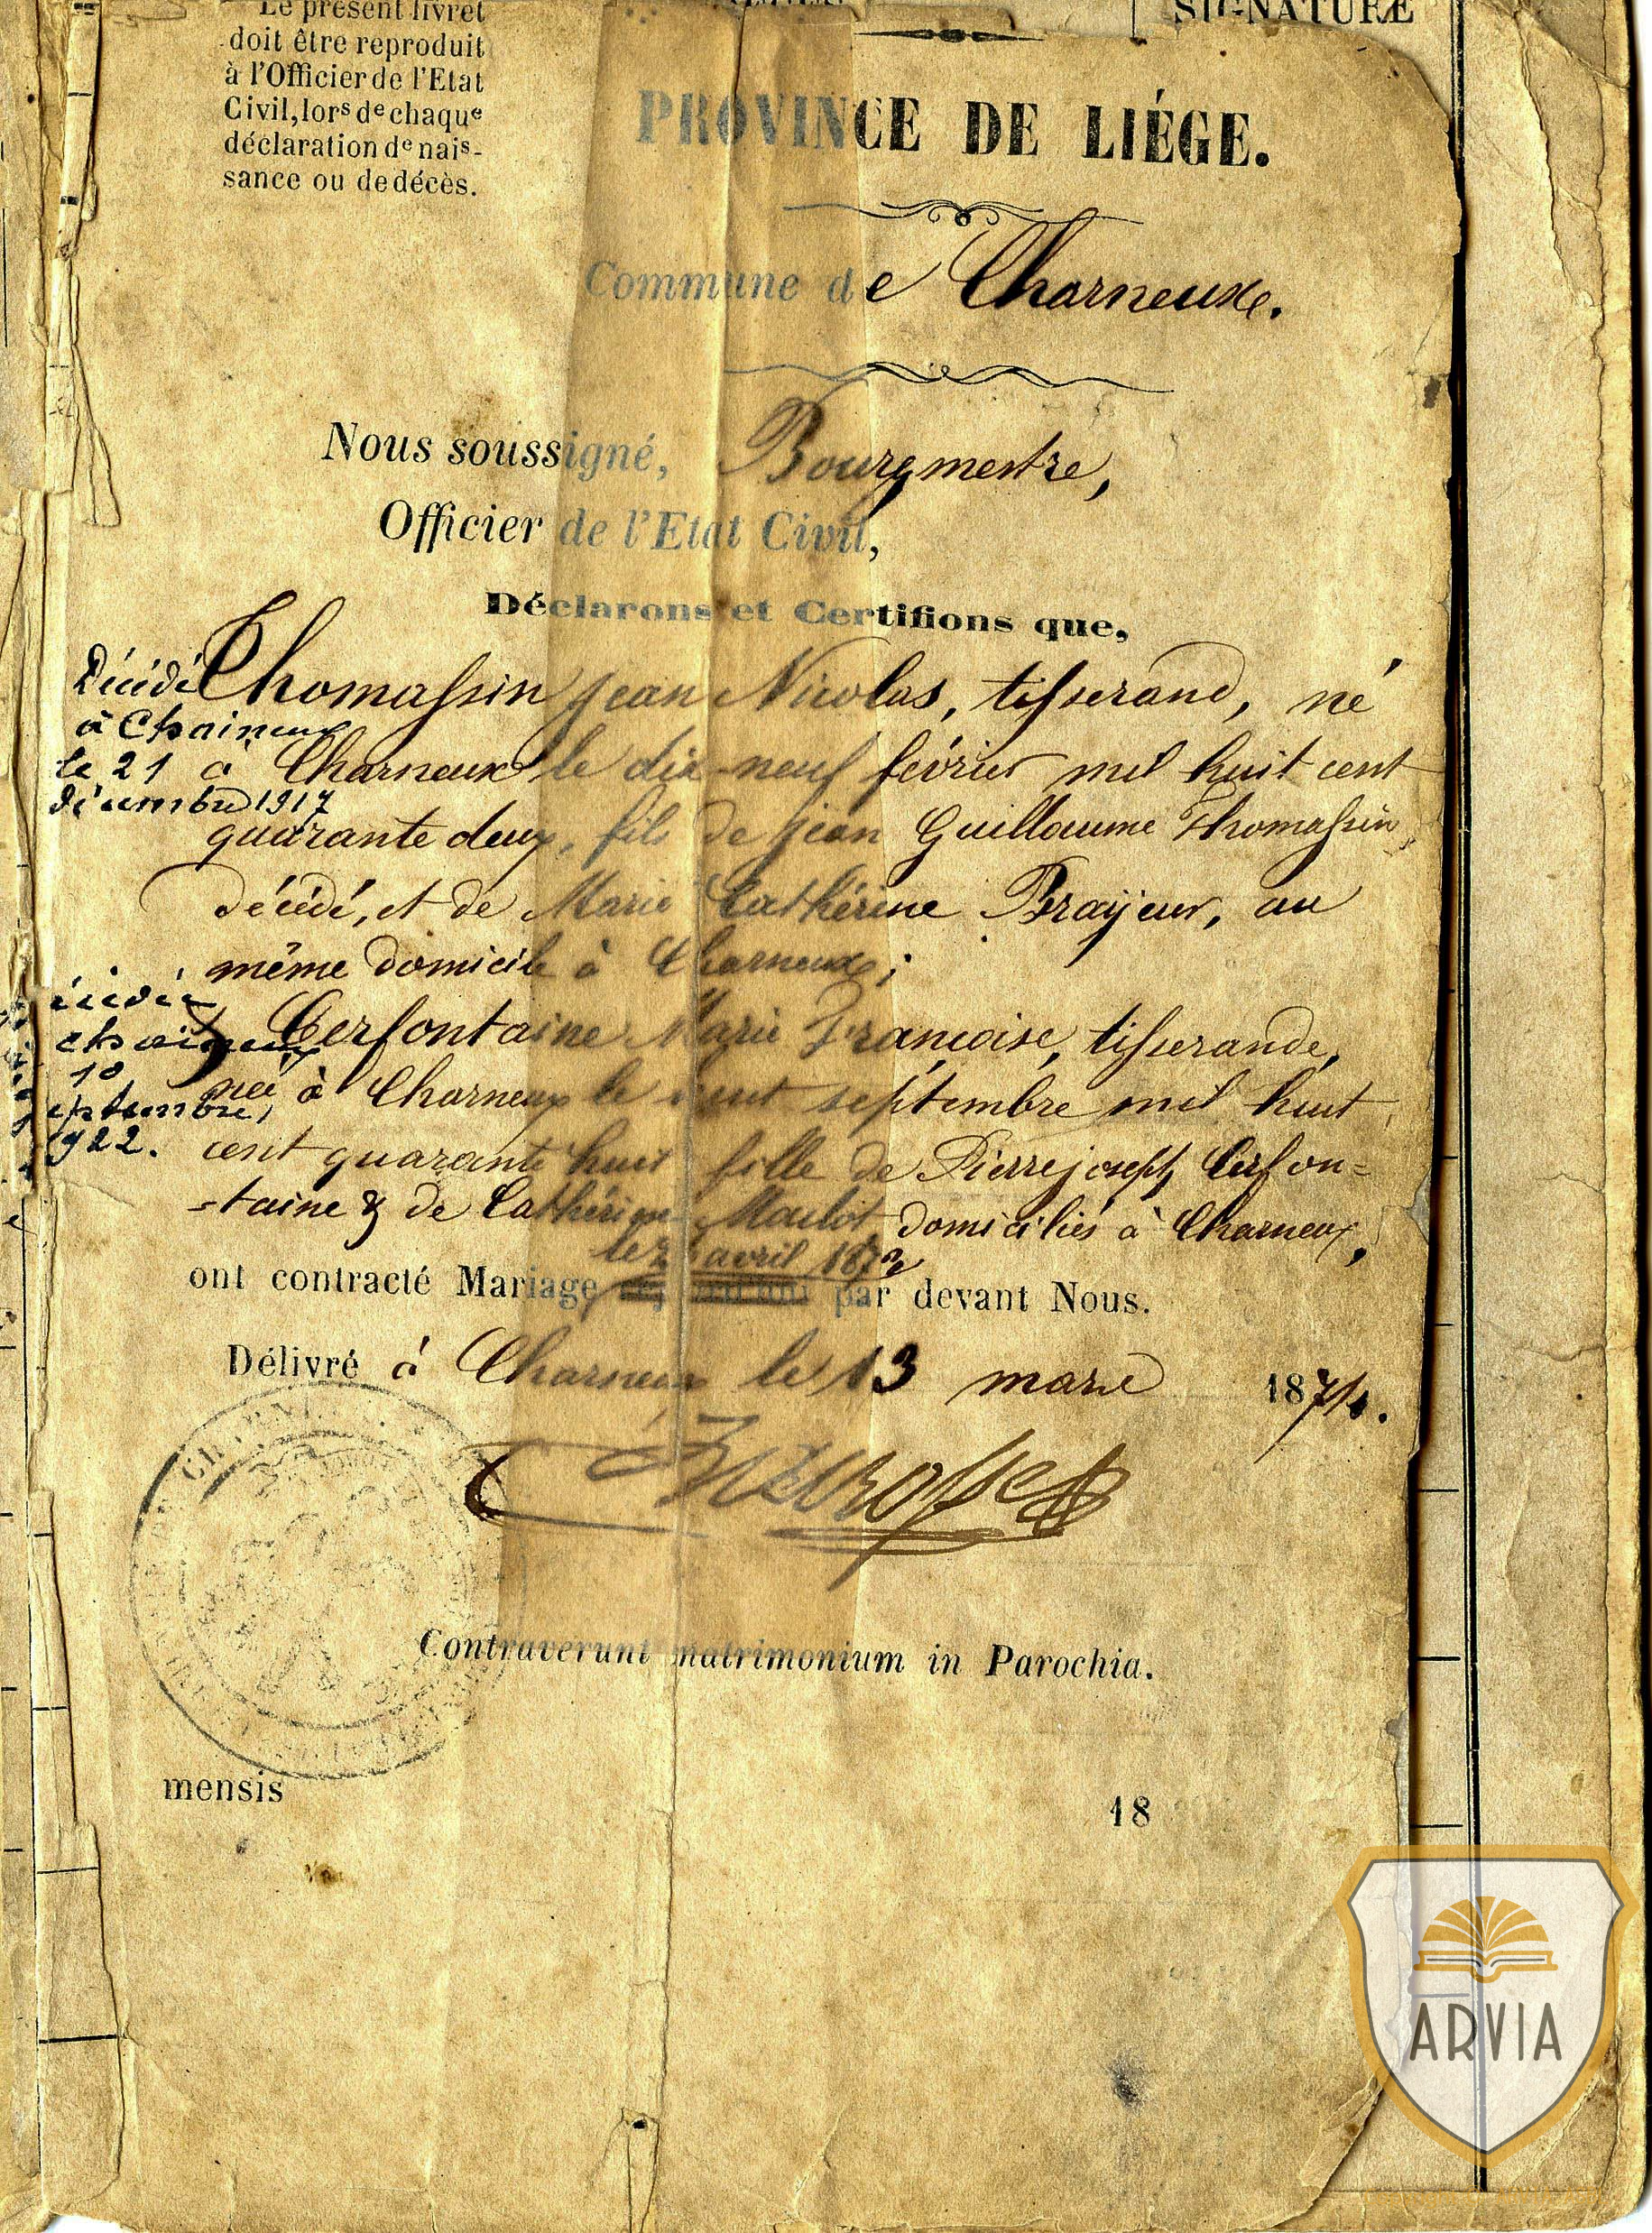 Le présent livret
doit être reproduit
à l'Officier de l'Etat
Civil, lors de chaque
déclaration de nais-
sance ou de décès.
SIGNATURE
PROVINCE DE LIÉGE.
Commune de Charneux.
Nous soussigné, Bourgmestre,
Officier de l'Etat Civil,
Déclarons et Certifions que,
Thomassin Jean Nicolas, tisserand, né
à Charneux le dix-neuf février mil huit cent
quarante deux, fils de Jean Guillaume Thomassin
décédé, et de Marie Cathérine Brayeur, au
même domicile à Charneux;
Décédé
à Chaineux
le 21
décembre 1917
& Cerfontaine Marie Françoise, tisserande,
née à Charneux le huit septembre mil huit
cent quarante huit fille de Pierre joseph Cerfon=
=taine & de Cathérine domiciliés à Charneux,
Chaineux
10
septembre
1922.
le avril 1872
ont contracté Mariage par devant Nous.
Délivré à Charneux le 13 mars 1874.
Contraverunt matrimonium in Parochia.
mensis 18
ARVIA